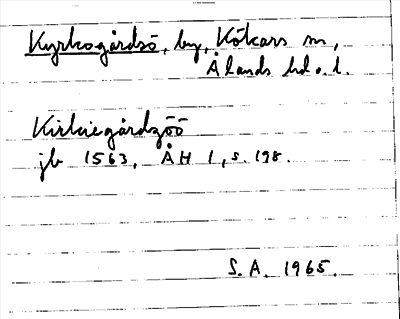 Kyrkogårdsö, by, Kökars sn,
Ålands hd o. l.
Kirkiegårdzöö
jb 1563, ÅH 1, s. 198.
S. A. 1965.